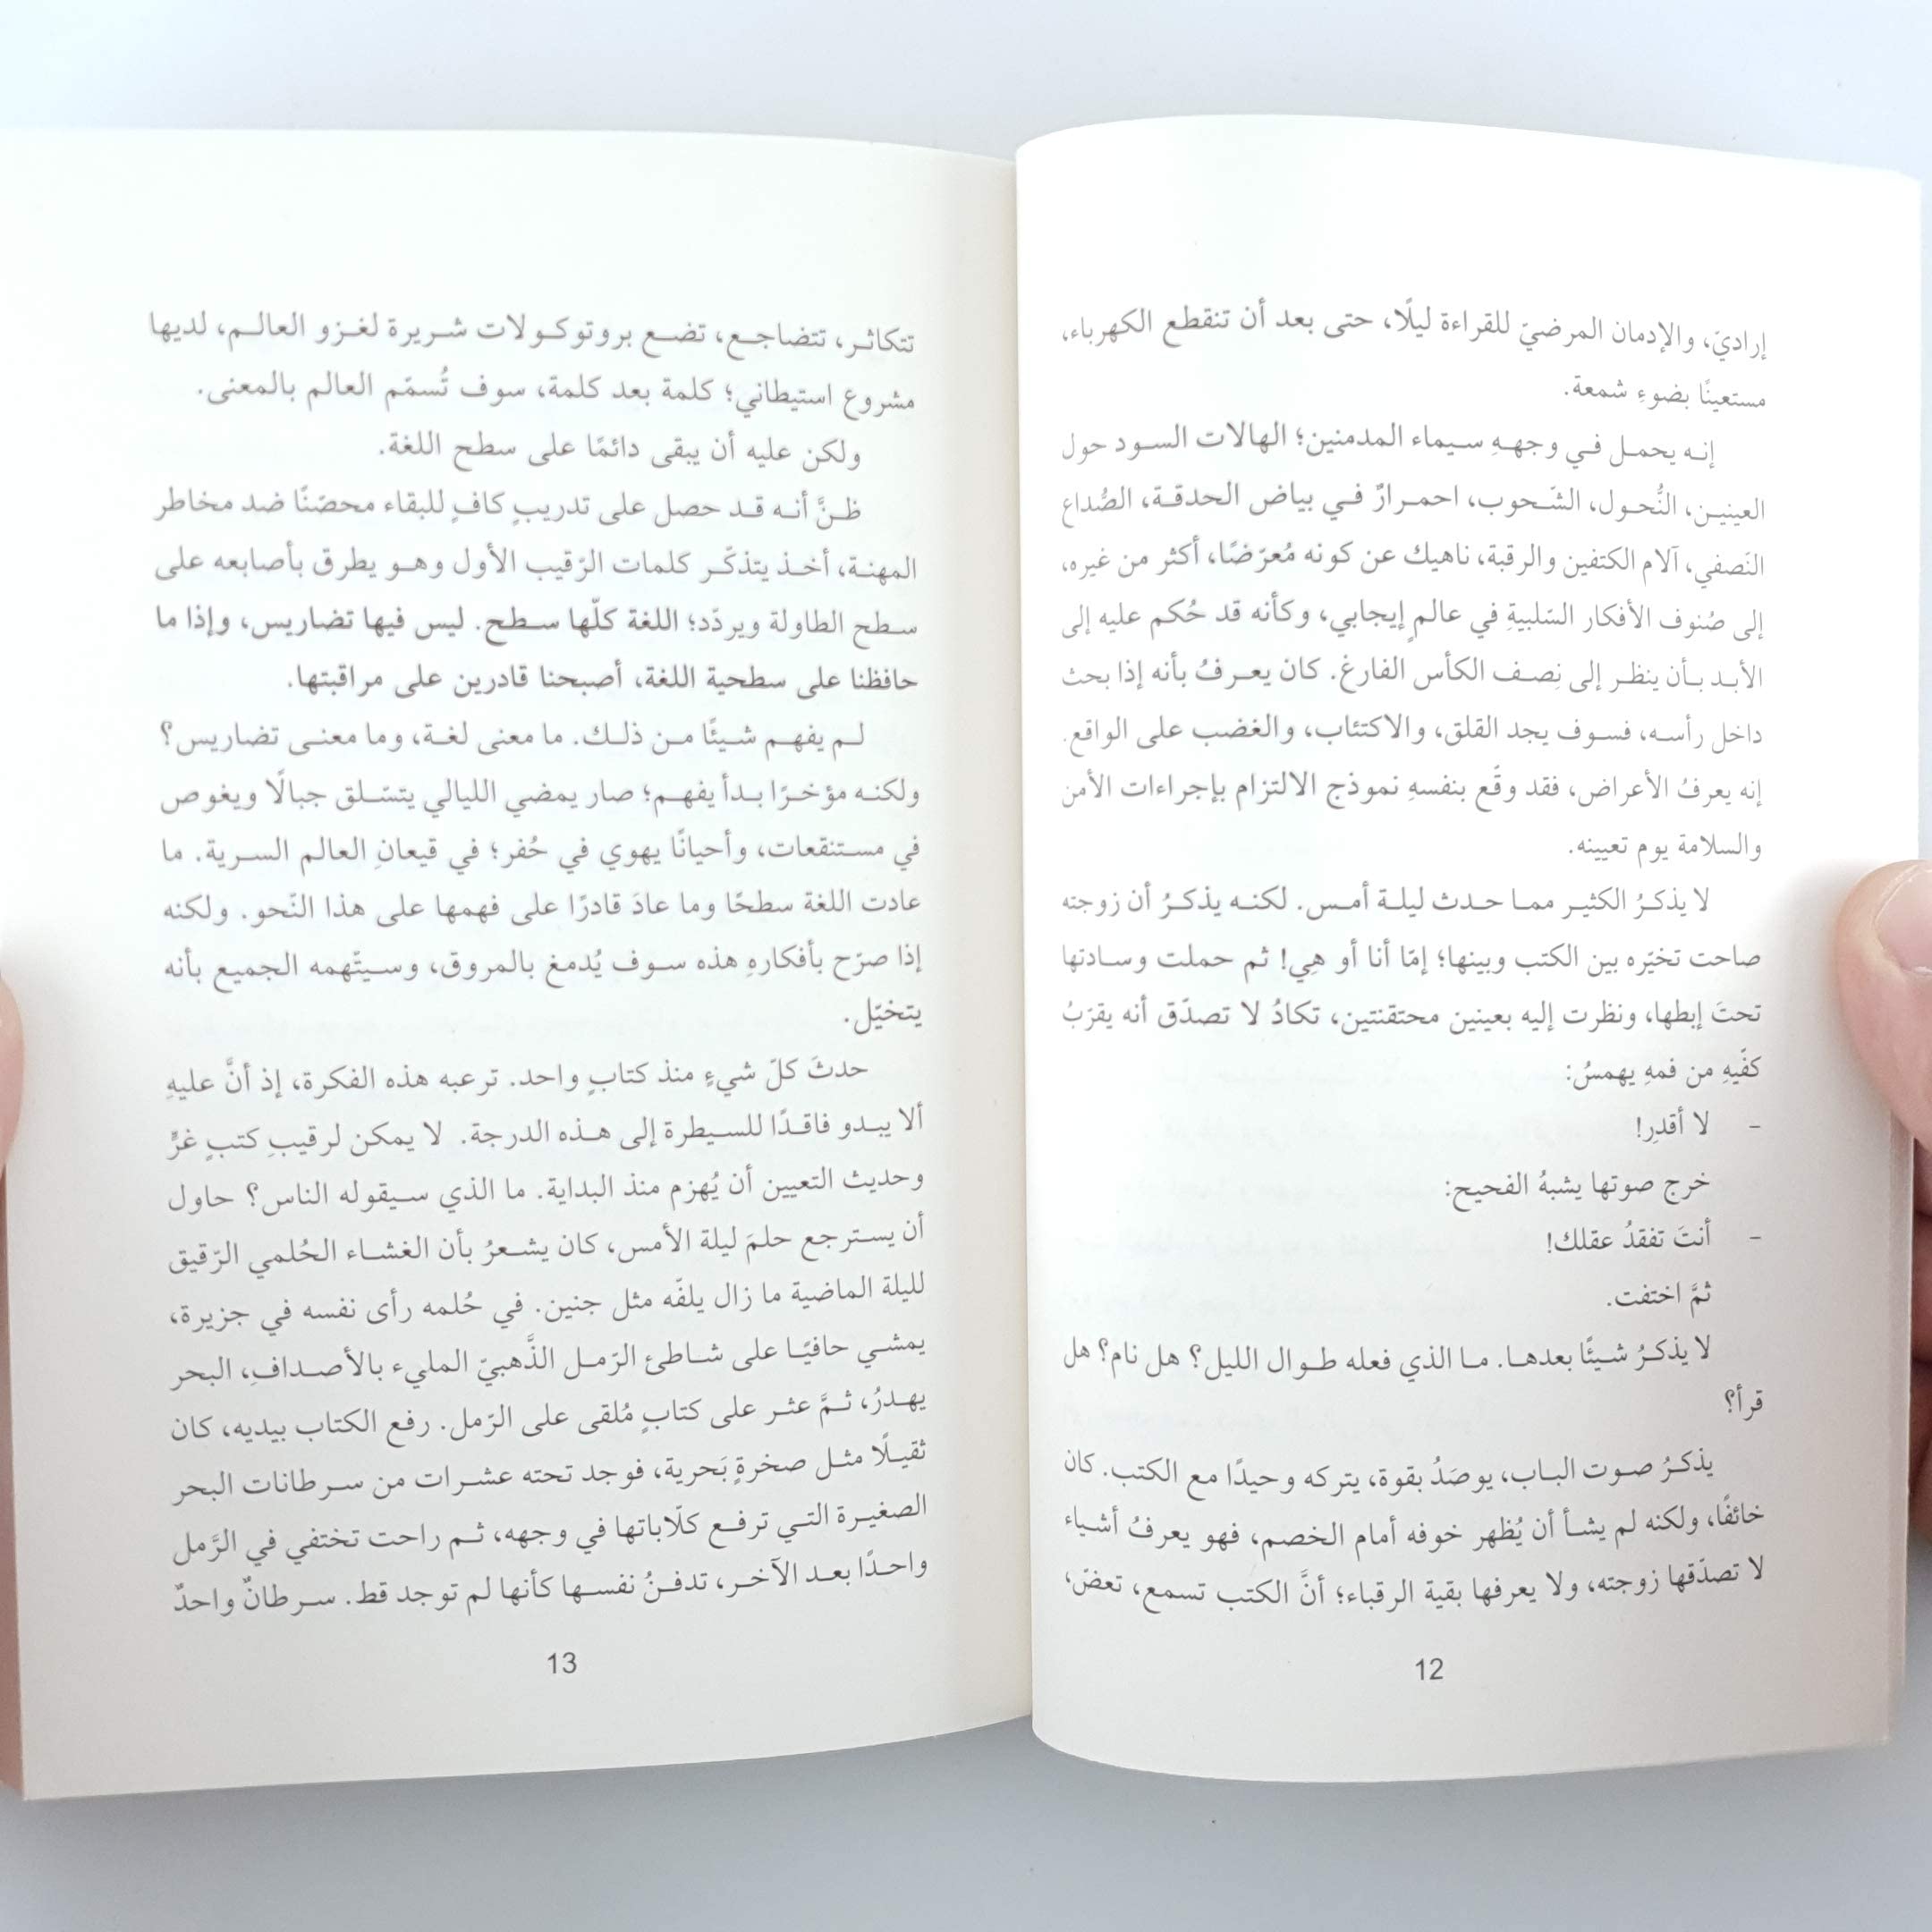 إراديّ، والإدمان المرضيّ للقراءة ليلًا، حتى بعد أن تنقطع الكهرباء،
مستعينًا بضوءِ شمعة.
إنه يحمل في وجههِ سيماء المدمنين؛ الهالات السود حول
العينين، النُّحول، الشّحوب، احمرارٌ في بياض الحدقة، الصُّداع
النّصفي، آلام الكتفين والرقبة، ناهيك عن كونه مُعرّضًا، أكثر من غيره،
إلى صُنوف الأفكار السّلبيةِ في عالمٍ إيجابي، وكأنه قد حُكم عليه إلى
الأبد بأن ينظر إلى نِصف الكأس الفارغ. كان يعرفُ بأنه إذا بحث
داخل رأسه، فسوف يجد القلق، والاكتئاب، والغضب على الواقع.
إنه يعرفُ الأعراض، فقد وقّع بنفسهِ نموذج الالتزام بإجراءات الأمن
والسلامة يوم تعيينه.
لا يذكرُ الكثير مما حدث ليلة أمس. لكنه يذكرُ أن زوجته
صاحت تخيّره بين الكتب وبينها؛ إمّا أنا أو هي! ثم حملت وسادتها
تحتَ إبطها، ونظرت إليه بعينين محتقنتين، تكادُ لا تصدّق أنه يقرّبُ
كفّيهِ من فمهِ يهمسُ:
- لا أقدرِ!
خرج صوتها يشبهُ الفحيح:
- أنتَ تفقدُ عقلك!
ثمَّ اختفت.
لا يذكرُ شيئًا بعدها. ما الذي فعله طوال الليل؟ هل نام؟ هل
قرأ؟
يذكرُ صوت الباب، يوصَدُ بقوة، يتركه وحيدًا مع الكتب. كان
خائفًا، ولكنه لم يشأ أن يُظهر خوفه أمام الخصم، فهو يعرفُ أشياء
لا تصدّقها زوجته، ولا يعرفها بقية الرقباء؛ أنَّ الكتب تسمع، تعضّ،
12
تتكاثر، تتضاجع، تضع بروتوكولات شريرة لغزو العالم، لديها
مشروع استيطاني؛ كلمة بعد كلمة، سوف تُسمّم العالم بالمعنى.
ولكن عليه أن يبقى دائمًا على سطح اللغة.
ظنَّ أنه قد حصل على تدريبٍ كافٍ للبقاء محصّنًا ضد مخاطر
المهنة، أخذ يتذكّر كلمات الرّقيب الأول وهو يطرق بأصابعه على
سطح الطاولة ويردّد؛ اللغة كلّها سطح. ليس فيها تضاريس، وإذا ما
حافظنا على سطحية اللغة، أصبحنا قادرين على مراقبتها.
لم يفهم شيئًا من ذلك. ما معنى لغة، وما معنى تضاريس؟
ولكنه مؤخرًا بدأ يفهم؛ صار يمضي الليالي يتسّلق جبالًا ويغوص
في مستنقعات، وأحيانًا يهوي في حُفر؛ في قيعانِ العالم السرية. ما
عادت اللغة سطحًا وما عادَ قادرًا على فهمها على هذا النّحو. ولكنه
إذا صرّح بأفكارهِ هذه سوف يُدمغ بالمروق، وسيتّهمه الجميع بأنه
يتخيّل.
حدثَ كلّ شيءٍ منذ كتابٍ واحد. ترعبه هذه الفكرة، إذ أنَّ عليهِ
ألا يبدو فاقدًا للسيطرة إلى هذه الدرجة. لا يمكن لرقيبِ كتبٍ غرٍّ
وحديث التعيين أن يُهزم منذ البداية. ما الذي سيقوله الناس؟ حاول
أن يسترجع حلمَ ليلة الأمس، كان يشعرُ بأن الغشاء الحُلمي الرّقيق
لليلة الماضية ما زال يلفّه مثل جنين. في حُلمه رأى نفسه في جزيرة،
يمشي حافيًا على شاطئ الرّمل الذَّهبيّ المليء بالأصدافِ، البحر
يهدرُ، ثمَّ عثر على كتابٍ مُلقى على الرّمل. رفع الكتاب بيديه، كان
ثقيلًا مثل صخرةٍ بَحرية، فوجد تحته عشرات من سرطانات البحر
الصغيرة التي ترفع كلّاباتها في وجهه، ثم راحت تختفي في الرَّمل
واحدًا بعد الآخر، تدفنُ نفسها كأنها لم توجد قط. سرطانٌ واحدٌ
13